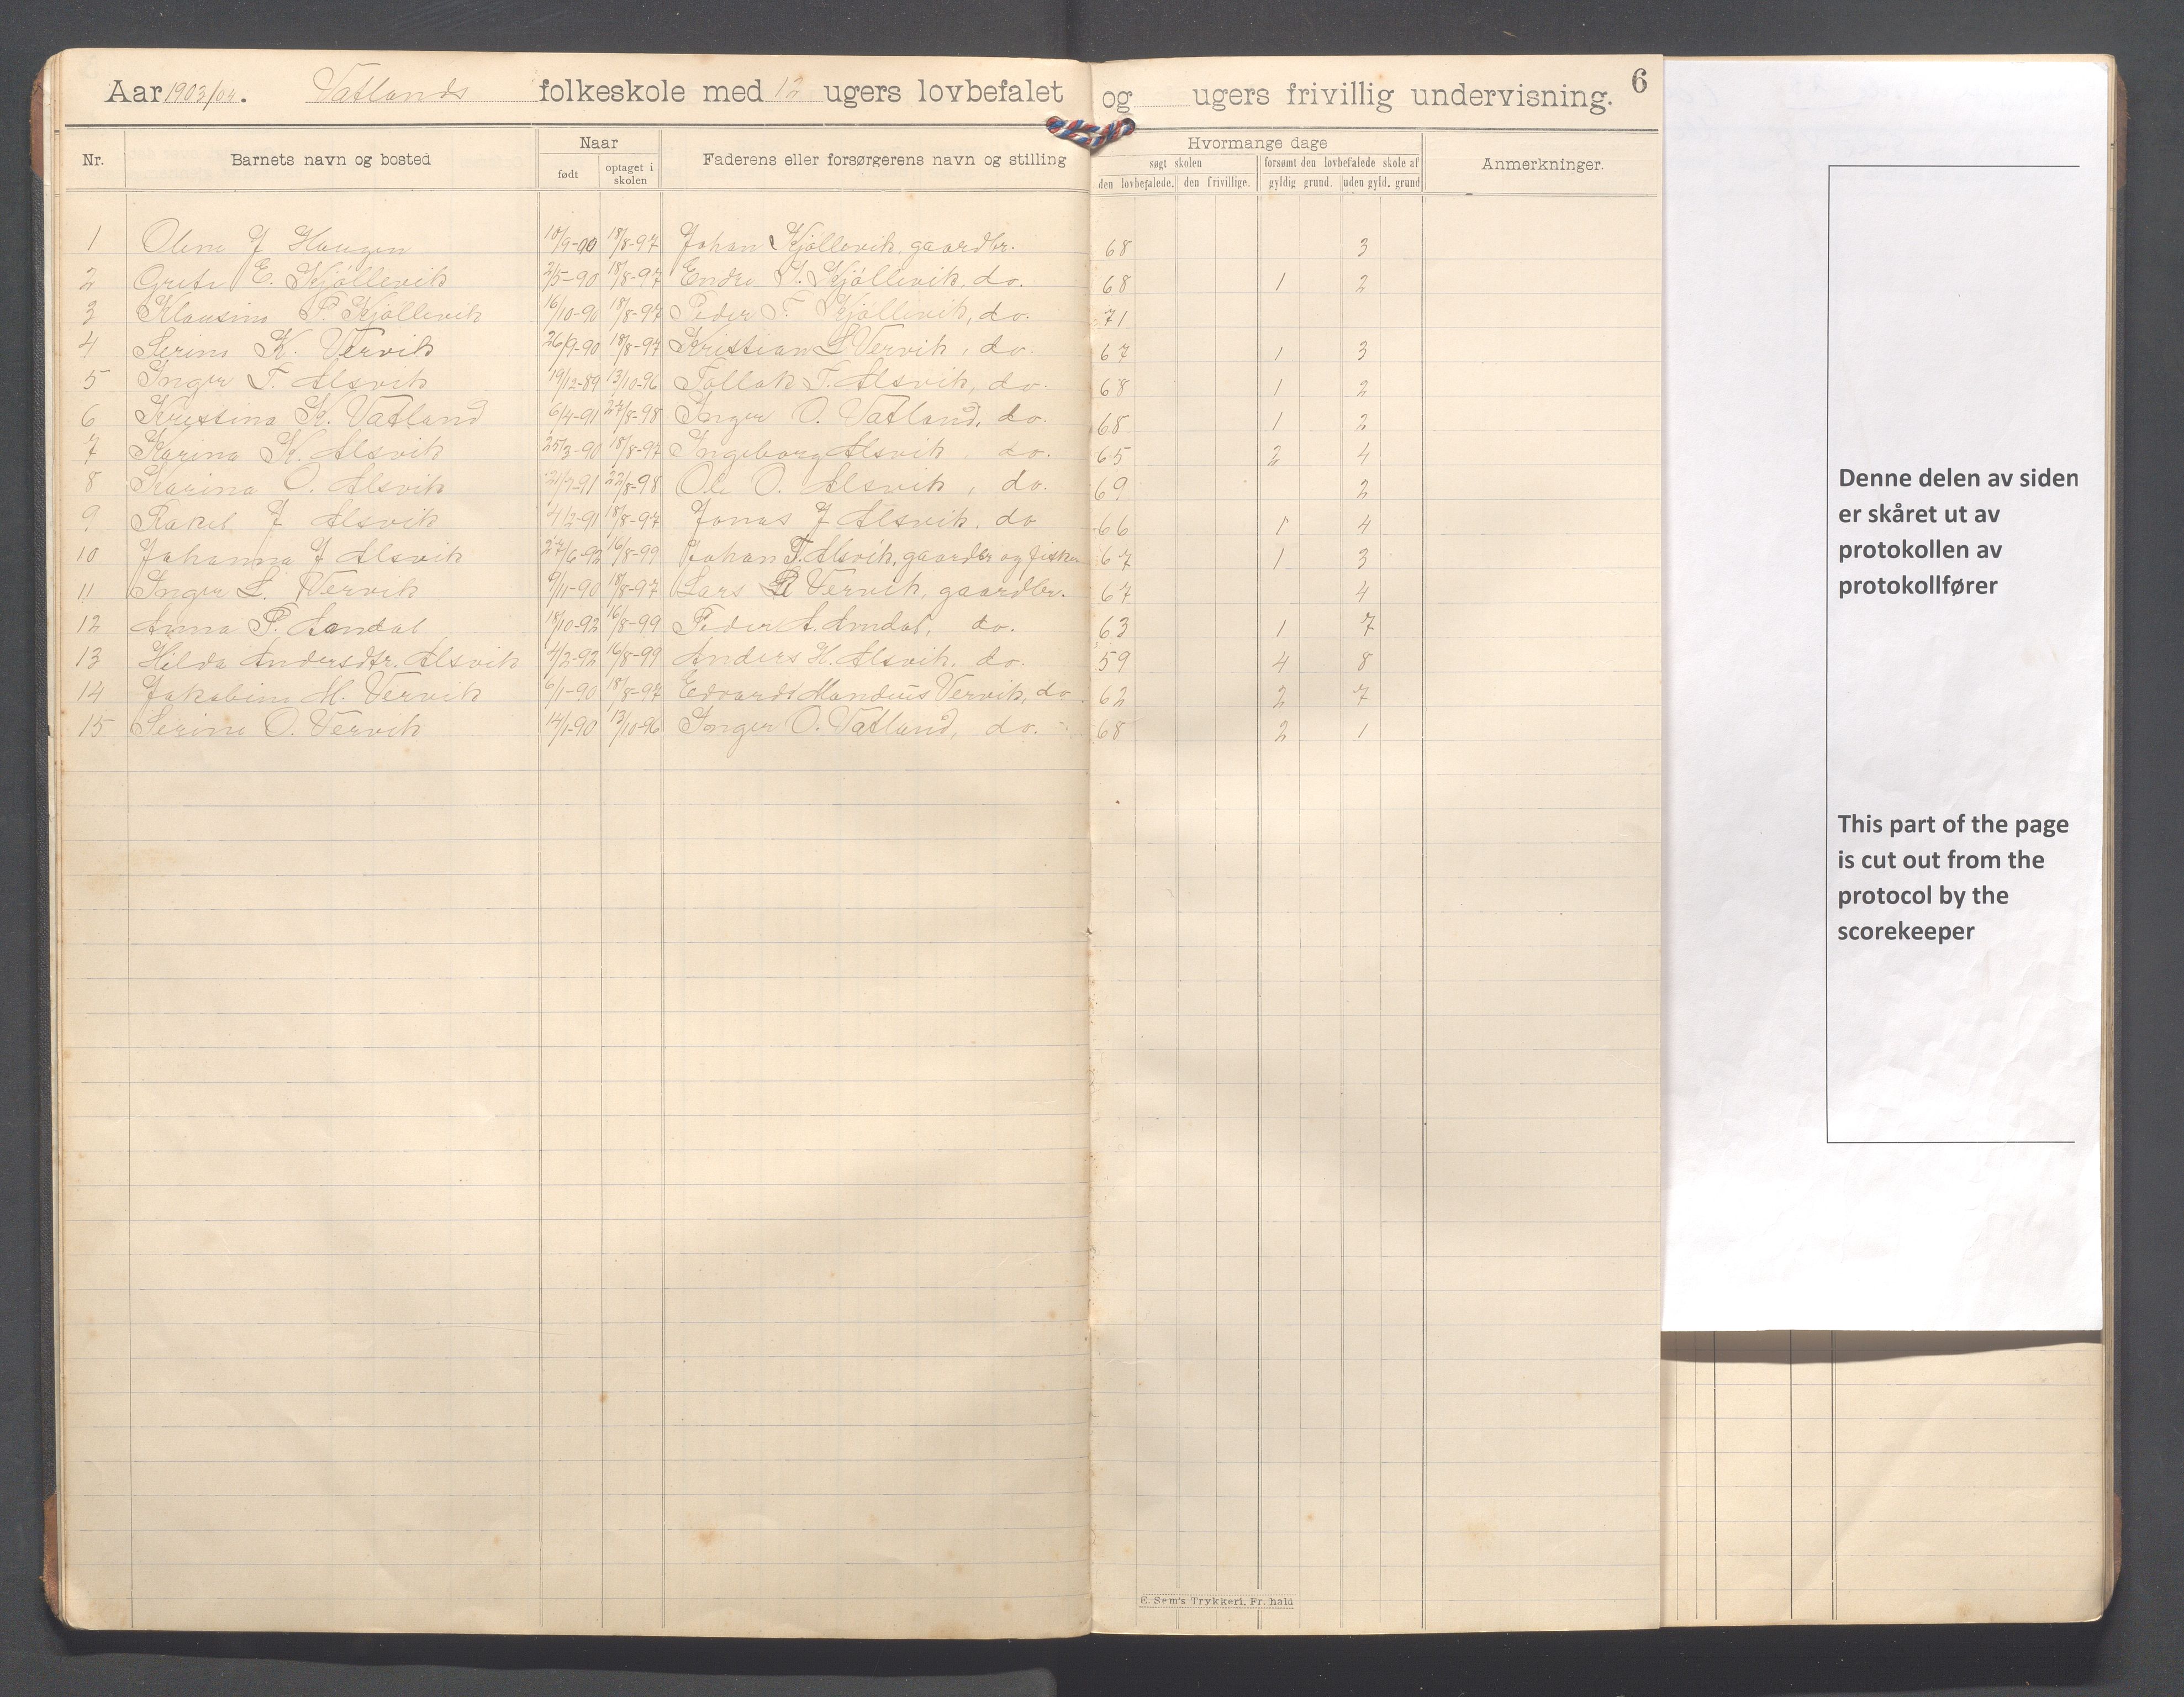 Aar 1903/04. Vatlands folkeskole med 12 ugers lovbefalet og ugers frivillig undervisning. 6
Nr. Barnets navn og bosted Naar født optaget i skolen Faderens eller forsørgerens navn og stilling Hvormange dage søgt skolen den lovbefalede. den frivillige. forsømt den lovbefalede skole af gyldig grund. uden gyld. grund Anmerkninger.
1 Oline J Haugen 10/9-90 18/8-97 Johan Kjøllevik, gaardbr. 68 3
2 Grete E. Kjøllevik 2/5-90 18/8-97 Endre T. Kjøllevik, do. 68 1 2
3 Klausine P. Kjøllevik 16/10-90 18/8-97 Peder T. Kjøllevik, do. 71
4 Serine K. Vervik 26/9-90 18/8-97 Kristian L Vervik, do. 67 1 3
5 Inger T. Alsvik 19/12-89 13/10-96 Tollak T. Alsvik, do. 68 1 2
6 Kristina K. Vatland 6/4-91 27/8-98 Inger O. Vatland, do. 68 1 2
7 Karina K. Alsvik 25/3-90 18/8-97 Ingeborg Alsvik, do. 65 2 4
8 Karina O. Alsvik 21/7-91 22/8-98 Ole O. Alsvik, do. 69 2
9 Rakel J Alsvik 4/2-91 18/8-97 Jonas J Alsvik, do 66 1 4
10 Johanna J Alsvik 27/6-92 16/8-99 Johan T. Alsvik, gaardbr og fisker 67 1 3
11 Inger L. Vervik 9/11-90 18/8-97 Lars R Vervik, gaardbr. 67 4
12 Anna P. Amdal 18/10-92 16/8-99 Peder A. Amdal, do. 63 1 7
13 Hilda Andersdtr. Alsvik 4/2-92 16/8-99 Anders H. Alsvik, do. 59 4 8
14 Jakobine M. Vervik 6/1-90 18/8-97 Edvardt Mandius Vervik, do 62 2 7
15 Serine O. Vervik 14/1-90 13/10-96 Inger O. Vatland, do. 68 2 1
E. Sem's Trykkeri, Fr. hald
Denne delen av siden
er skåret ut av
protokollen av
protokollfører
This part of the page
is cut out from the
protocol by the
scorekeeper